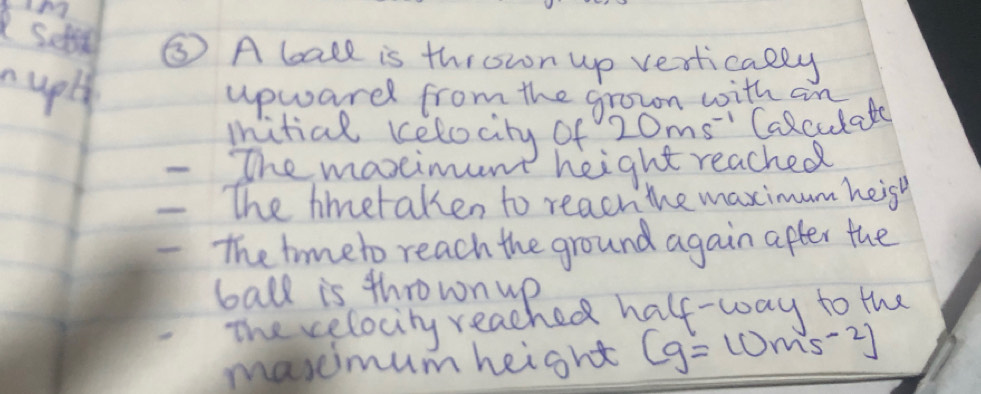 ③ A ball is thrown up vertically
upward from the grown with an
initial velocity of 20ms⁻¹ Calculate
- The maximum height reached
- The time taken to reach the maximum
- The time to reach the ground again after the
ball is thrown up
- The velocity reached half-way to the
maximum height [g= 10ms⁻²]